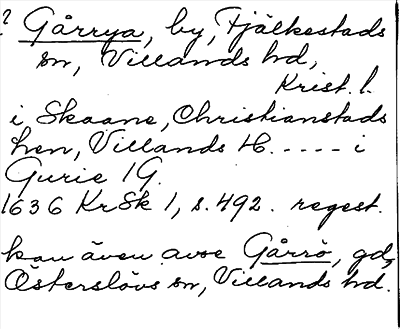 ? Gårrya, by, Fjälkestads
sn, Villands hd,
Krist. l.
i Skaane, Christianstads
Len, Villands H. ----- i
Gurie 1 G.
1636 KrSk 1, s. 492. regest.
kan även avse Gårrö, gd,
Österslövs sn, Villands hd.